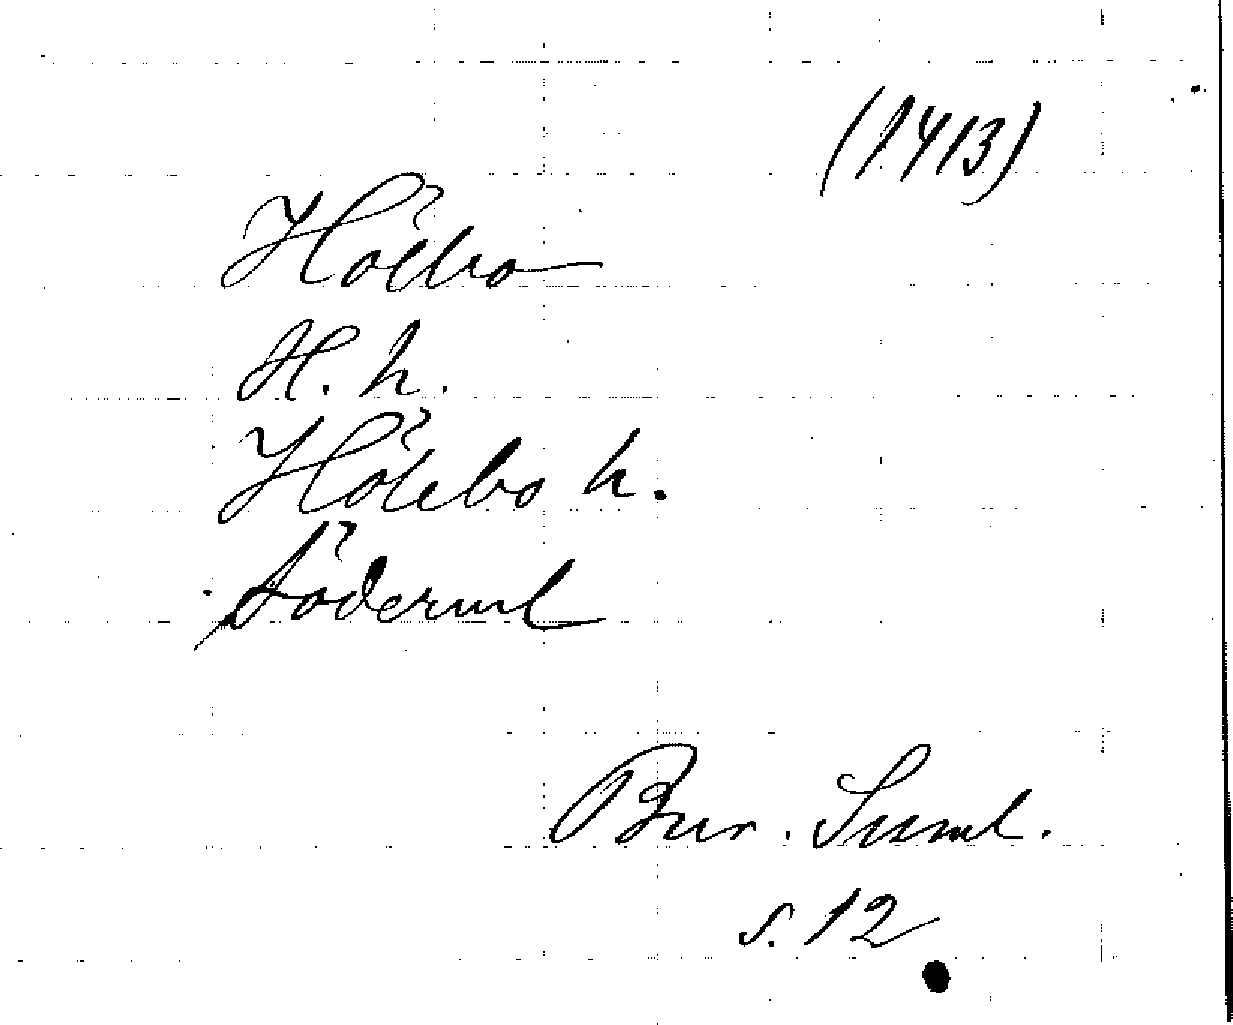 (1413)
Hölbo
H. h.
Hölebo h.
Söderml
Bur. Suml.
s. 12